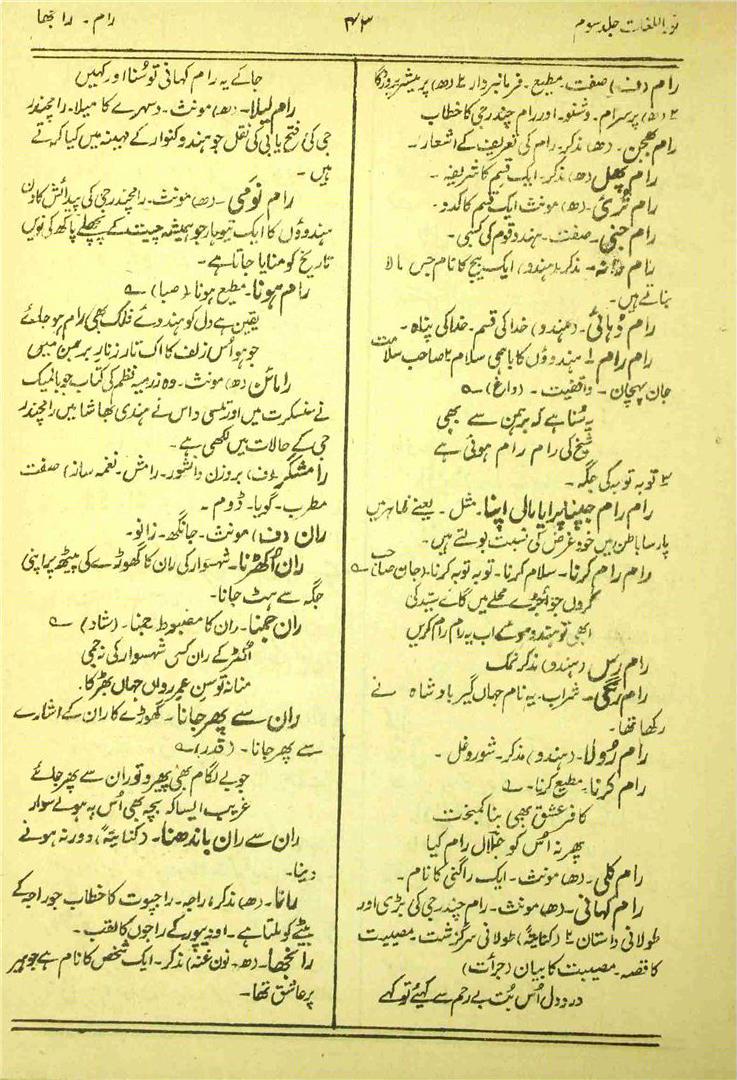 نور اللغات جلد سوم
۴۳
رام۔ رانجھا
رام (ف) صفت۔ مطیع۔ فرمانبردار ۲ (ھ) پرمیشر۔
۳ (ھ) پرسرام۔ وشنو۔ اور رام چندر جی کا خطاب
رام بھجن۔ (ھ) مذکر۔ رام کی تعریف کے اشعار۔
رام پھل (ھ) مذکر۔ ایک قسم کا شریفہ۔
رام ترئی۔ (ھ) مونث ایک قسم کا کدو۔
رام جنی۔ صفت۔ ہندو قوم کی کسبی۔
رام دانہ۔ مذکر (ہندو) ایک بیج کا نام جس مالا
بناتے ہیں۔
رام دُہائی۔ (ہندو) خدا کی قسم۔ خدا کی پناہ۔
رام رام ۱ ہندوؤں کا باہمی سلام ۲ صاحب سلامت
جان پہچان۔ واقفیت۔ (داغ) ؎
یہ سُنا ہے کہ برہمن سے بھی
شیخ کی رام رام ہوئی ہے
۳ توبہ توبہ کی جگہ۔
رام رام جپنا پرایا مالی اپنا۔ مثل۔ یعنے ظاہر میں
پارسا باطن میں خود غرض کی نسبت بولتے ہیں۔
رام رام کرنا۔ سلام کرنا۔ توبہ توبہ کرنا۔ (جان صاحب) ؎
گروں جو اُجڑے محلے میں گائے سیّد کی
ابھی تو ہندو موئے اب یہ رام رام کریں
رام رس (ہندو) مذکر نمک
رام رنگی۔ شراب۔ یہ نام جہاں گیر بادشاہ نے
رکھا تھا۔
رام رَولا۔ (ہندو) مذکر۔ شور و غل۔
رام کرنا۔ مطیع کرنا۔ ؎
کافر عشق بھی بنا کمبخت
پھر نہ اُس کو جلال رام کیا
رام کلی۔ (ھ) مونث۔ ایک راگنی کا نام۔
رام کہانی۔ (ھ) مونث۔ رام چندر جی کی بڑی اور
طولانی داستان ۲ (کنایۃً) طولانی سرگزشت۔ مصیبت
کا قصہ۔ مصیبت کا بیان (جرأت)
درد دل اُس بُت بے رحم سے کہئے تو کہے
جا کے یہ رام کہانی تو سُنا اور کہیں
رام لیلا۔ (ھ) مونث۔ دسہرے کا میلا۔ رامچندر
جی کی فتح یابی کی نقل جو ہندو کنوار کے مہینہ میں کیا کرتے
ہیں۔
رام نومی۔ (ھ) مونث۔ رامچندر جی کی پیدائش کا دن
ہندوؤں کا ایک تیوہار جو ہمیشہ چیت کے پچھلے پاکھ کی نویں
تاریخ کو منایا جاتا ہے۔
رام ہونا۔ مطیع ہونا (صبا) ؎
یقین ہے دل کو ہندوئے فلک بھی رام ہو جائے
جو ہو اُس زلف کا اک تار زنارِ برہمن میں
رامائن (ھ) مونث۔ وہ رزمیہ نظم کی کتاب جو بالمیک
نے سنسکرت میں اور تلسی داس نے ہندی بھاشا میں رامچندر
جی کے حالات میں لکھی ہے۔
رامشگر (ف) بروزن دانشور۔ رامش۔ نغمہ ساز) صفت
مطرب۔ گویا۔ ڈوم۔
ران (ف) مونث۔ جانگھ۔ زانو۔
ران اُکھڑنا۔ شہسوار کی ران کا گھوڑے کی پیٹھ پر اپنی
جگہ سے ہٹ جانا۔
ران جمنا۔ ران کا مضبوط جمنا۔ (شاد) ؎
اُکھڑ کے ران کسی شہسوار کی نہ جمی
منانہ توسنِ عمر رواں جہاں بھڑکا۔
ران سے پھر جانا۔ گھوڑے کا ران کے اشارے
سے پھر جانا۔ (قدر) ؎
جو بے لگام بھی پھیرو تو ران سے پھر جائے
غریب ایسا کہ بچہ بھی اُس پہ ہولے سوار
ران سے ران باندھنا۔ (کنایۃً) دور نہ ہونے
دینا۔
رانا۔ (ھ) مذکر۔ راجہ۔ راجپوت کا خطاب جو راجہ کے
بیٹے کو ملتا ہے۔ اودیپور کے راجوں کا لقب۔
رانجھا۔ (ھ۔ نون غنہ) مذکر۔ ایک شخص کا نام ہے جو ہیر
پر عاشق تھا۔